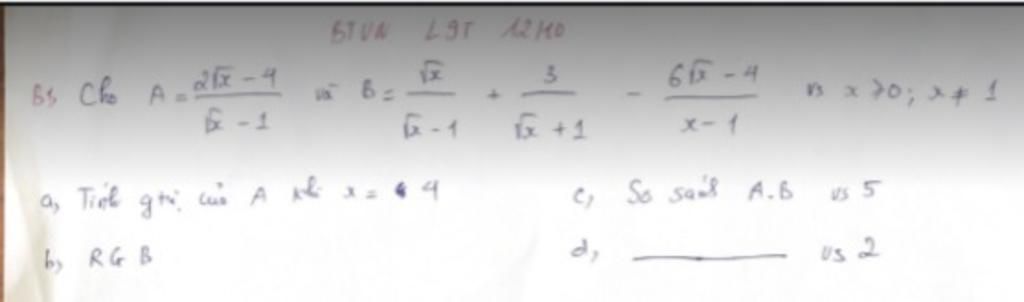 BTVN L9T 12H0
B1, Cho A = (2√x - 4)/(√x - 1) và B = √x/(√x - 1) + 3/(√x + 1) - (6√x - 4)/(x - 1) vs x ≥ 0; x ≠ 1
a, Tính gtrị của A khi x = 4
c, So sánh A.B vs 5
b, RG B
d, ________ vs 2